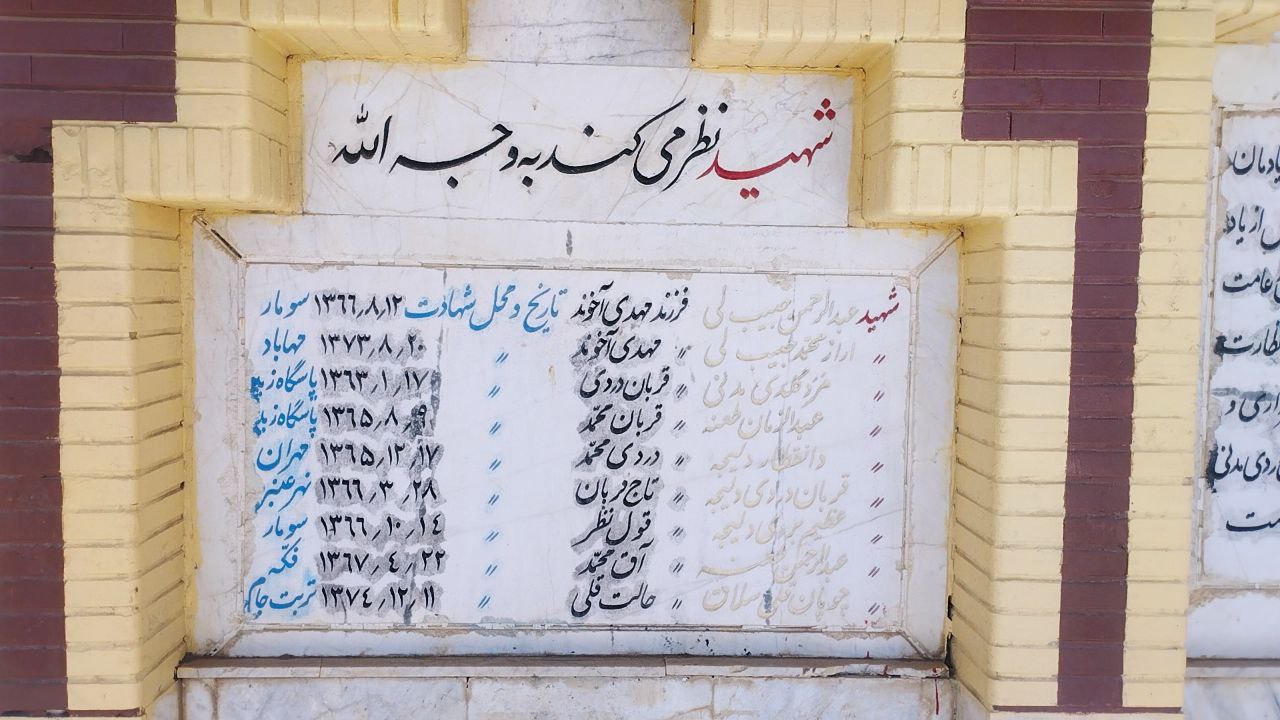 شهید نظر می کند به وجه الله
شهید عبدالرحمن حبیب لی فرزند مهدی آخوند تاریخ و محل شهادت ۱۳۶۶٫۸٫۱۲ سومار
〃 اراز محمد حبیب لی 〃 مهدی آخوند 〃 ۱۳۷۳٫۸٫۲۰ مهاباد
〃 مدنی 〃 قربان دردی 〃 ۱۳۶۳٫۱٫۱۷ پاسگاه زید
〃 عبدالزمان 〃 قربان محمّد 〃 ۱۳۶۵٫۸٫۹ پاسگاه زید
〃 دلیجه 〃 دردی محمّد 〃 ۱۳۶۵٫۱۲٫۱۷ مهران
〃 قربان دردی دلیجه 〃 تاج قربان 〃 ۱۳۶۶٫۳٫۲۸ نهر عنبر
〃 عظیم بردی دلیجه 〃 قول نظر 〃 ۱۳۶۶٫۱۰٫۱۴ سومار
〃 عبدالرحمن 〃 آق محمّد 〃 ۱۳۶۷٫۴٫۲۲ فکّه
〃 چوپان قلی سلاق 〃 حالت قلی 〃 ۱۳۷۴٫۱۲٫۱۱ تربت جام
یادمان
از یاد
عامت
داری و
دردی مدنی